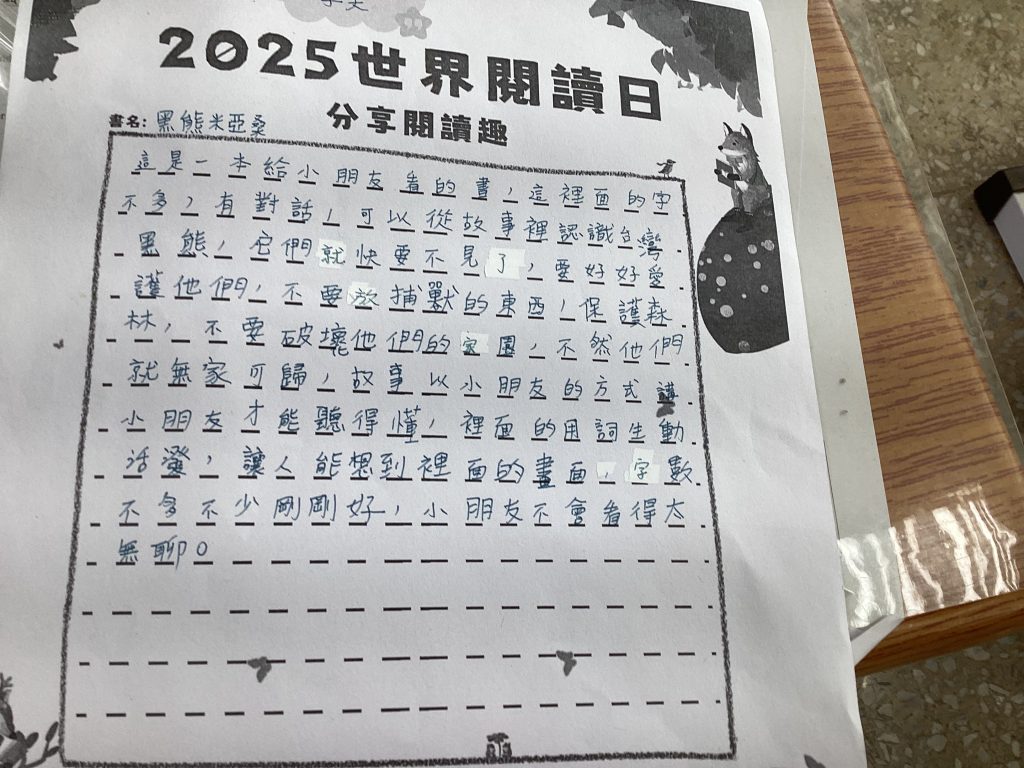 2025世界閱讀日
分享閱讀趣
書名:黑熊米亞桑
這是一本給小朋友看的書,這裡面的字
不多,有對話,可以從故事裡認識台灣
黑熊,它們就快要不見了,要好好愛
護他們,不要放捕獸的東西,保護森
林,不要破壞他們的家園,不然他們
就無家可歸,故事以小朋友的方式講
小朋友才能聽得懂,裡面的用詞生動
活潑,讓人能想到裡面的畫面,字數
不多不少剛剛好,小朋友不會看得太
無聊。